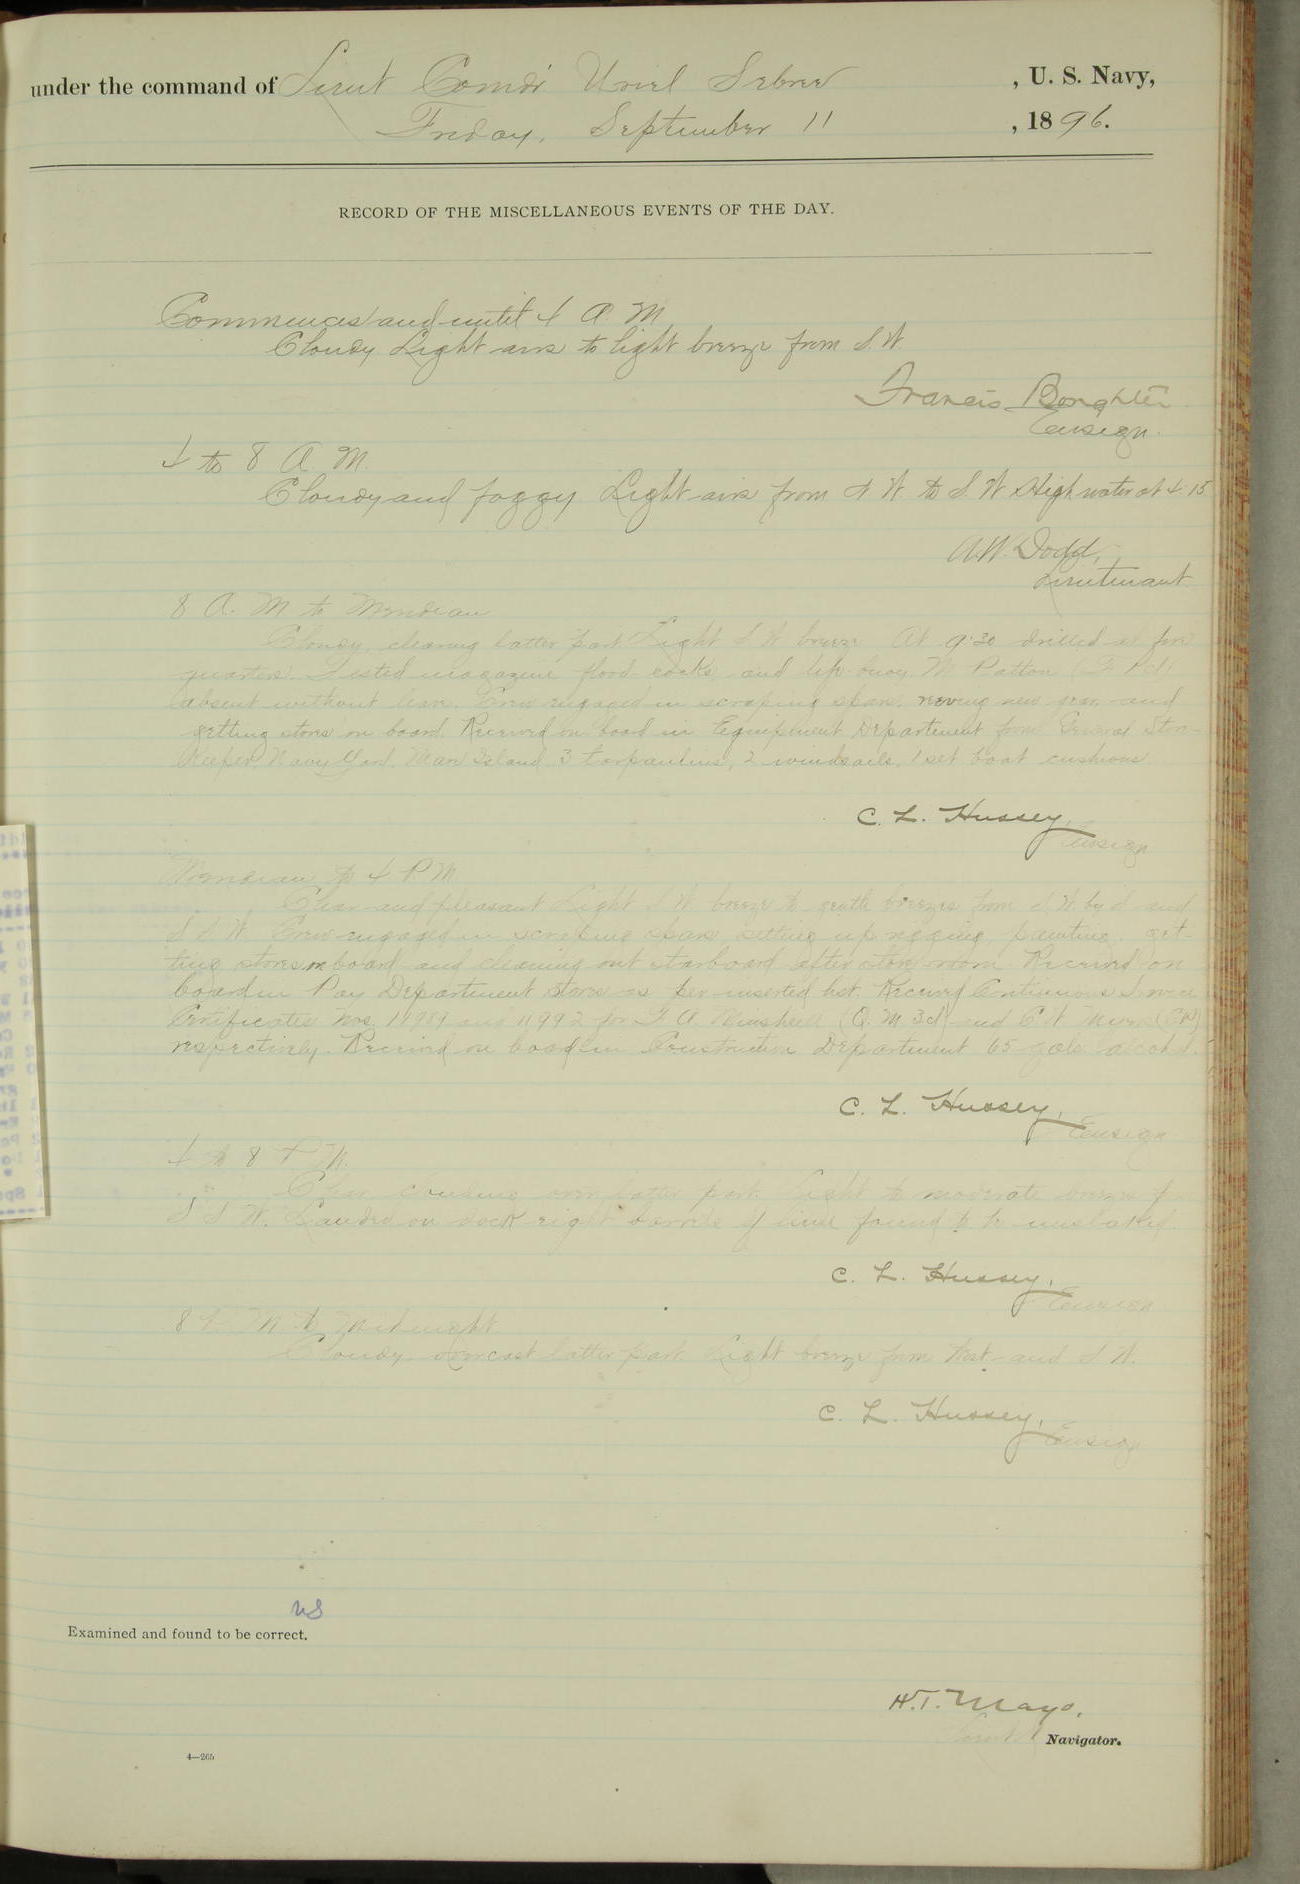 under the command of Lieut Comdr Uriel Sebree, U. S. Navy,
Friday, September 11, 1896.
RECORD OF THE MISCELLANEOUS EVENTS OF THE DAY.
Commences and until 4 A. M.
Cloudy Light airs to light breeze from S. W
Francis Boughter
Ensign.
4 to 8 A. M.
Cloudy and foggy Light airs from N W. to S. W High water at 4.15
A.W. Dodd,
Lieutenant
8 A. M to Meridian
Cloudy, clearing latter part Light S W breeze At 9:30 drilled at fire
quarters. Tested magazine flood cocks and life buoy. M Patton
absent without leave. Crew engaged in scraping spars, reeving new gear and
getting stores on board. Received on board in Equipment Department from General Store-
Keeper, Navy Yard, Mare Island 3 tarpaulins, 2 windsails, 1 set boat cushions.
C. L. Hussey,
Ensign
Meridian to 4 P. M
Clear and pleasant Light S W breeze to gentle breezes from S. W. by S and
S S W. Crew engaged in scraping spars, setting up rigging, painting, get-
ting stores on board and cleaning out starboard after store room. Received on
board in Pay Department stores as per inserted list. Received Continuous Service
Certificates Nos. 11989 and 11992 for F A (Q. M 3cl) and C W
respectively. Received on board in Construction Department 65 gals alcohol.
C. L. Hussey,
Ensign
4 to 8 P M.
Clear clouding over latter part. Light to moderate breeze f
S S W. Landed on dock eight barrels of lime found to be unslaked
C. L. Hussey,
Ensign
8 P. M to Midnight
Cloudy overcast latter part Light breeze from West and S W.
C. L. Hussey,
Ensign
US
Examined and found to be correct.
H.T. Mayo,
Lieut Navigator.
4—265